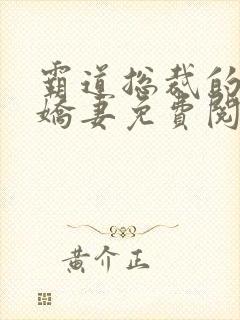 霸道总裁的
娇妻免費閱
黄介正